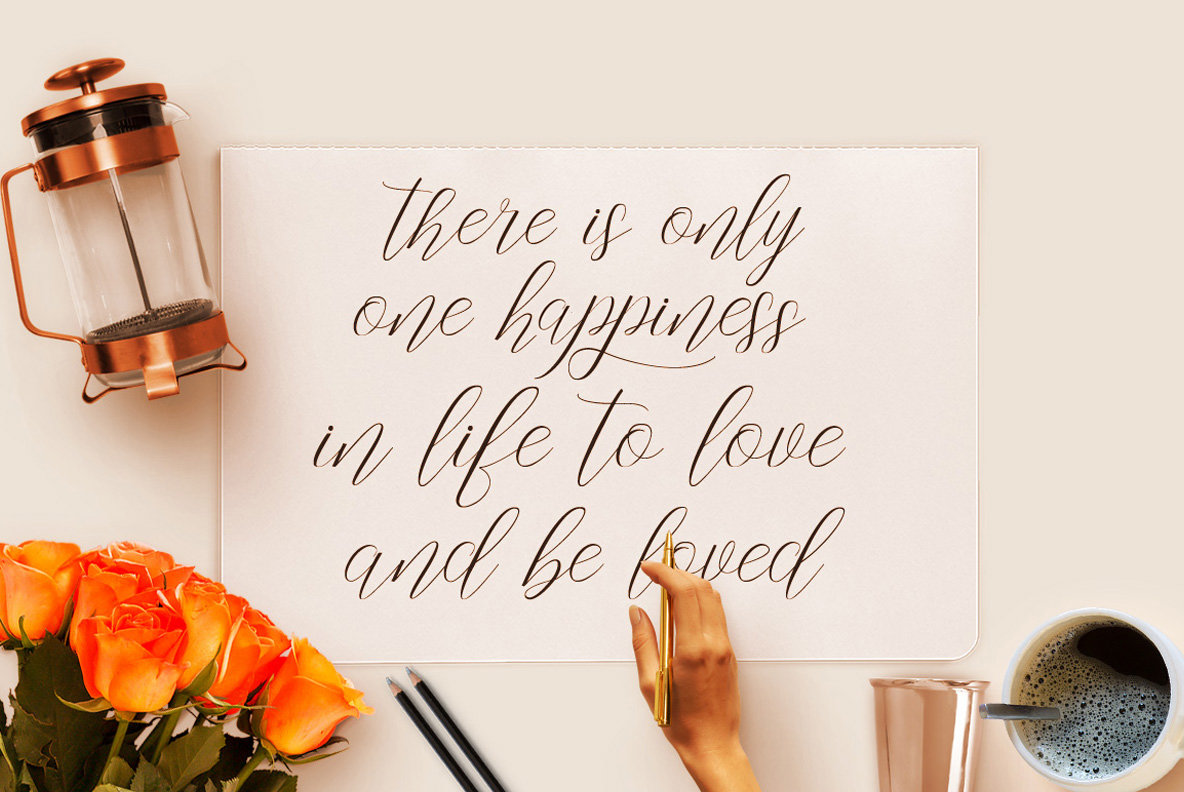 there is only
one happiness
in life to love
and be loved